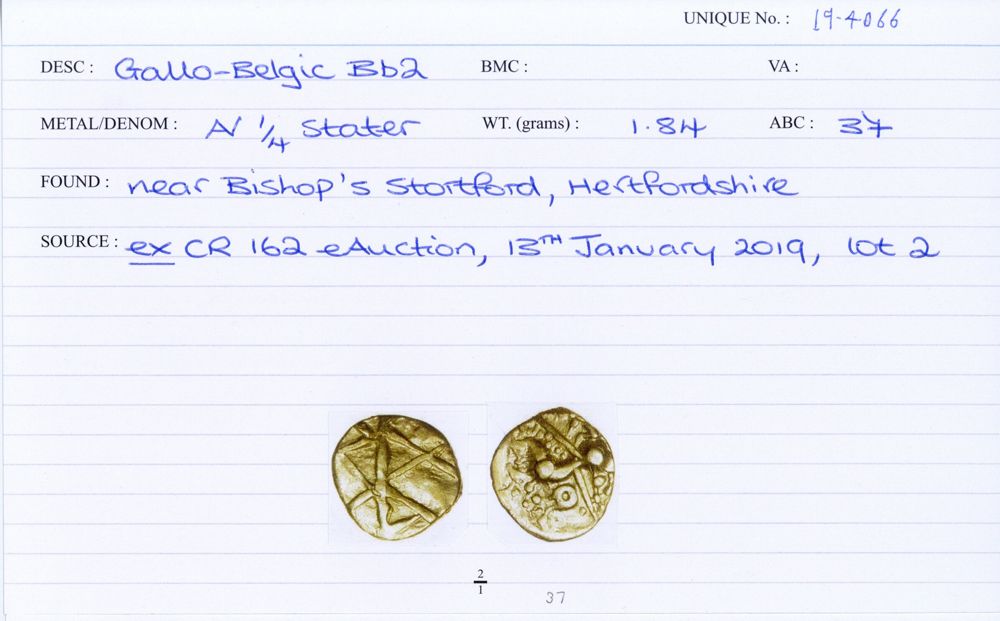 UNIQUE No. : 19-4066
DESC : Gallo-Belgic Bb2 BMC : VA :
METAL/DENOM : AV 1/4 Stater WT. (grams) : 1.84 ABC : 37
FOUND : near Bishop's Stortford, Hertfordshire
SOURCE : ex CR 162 eAuction, 13TH January 2019, lot 2
2/1
37